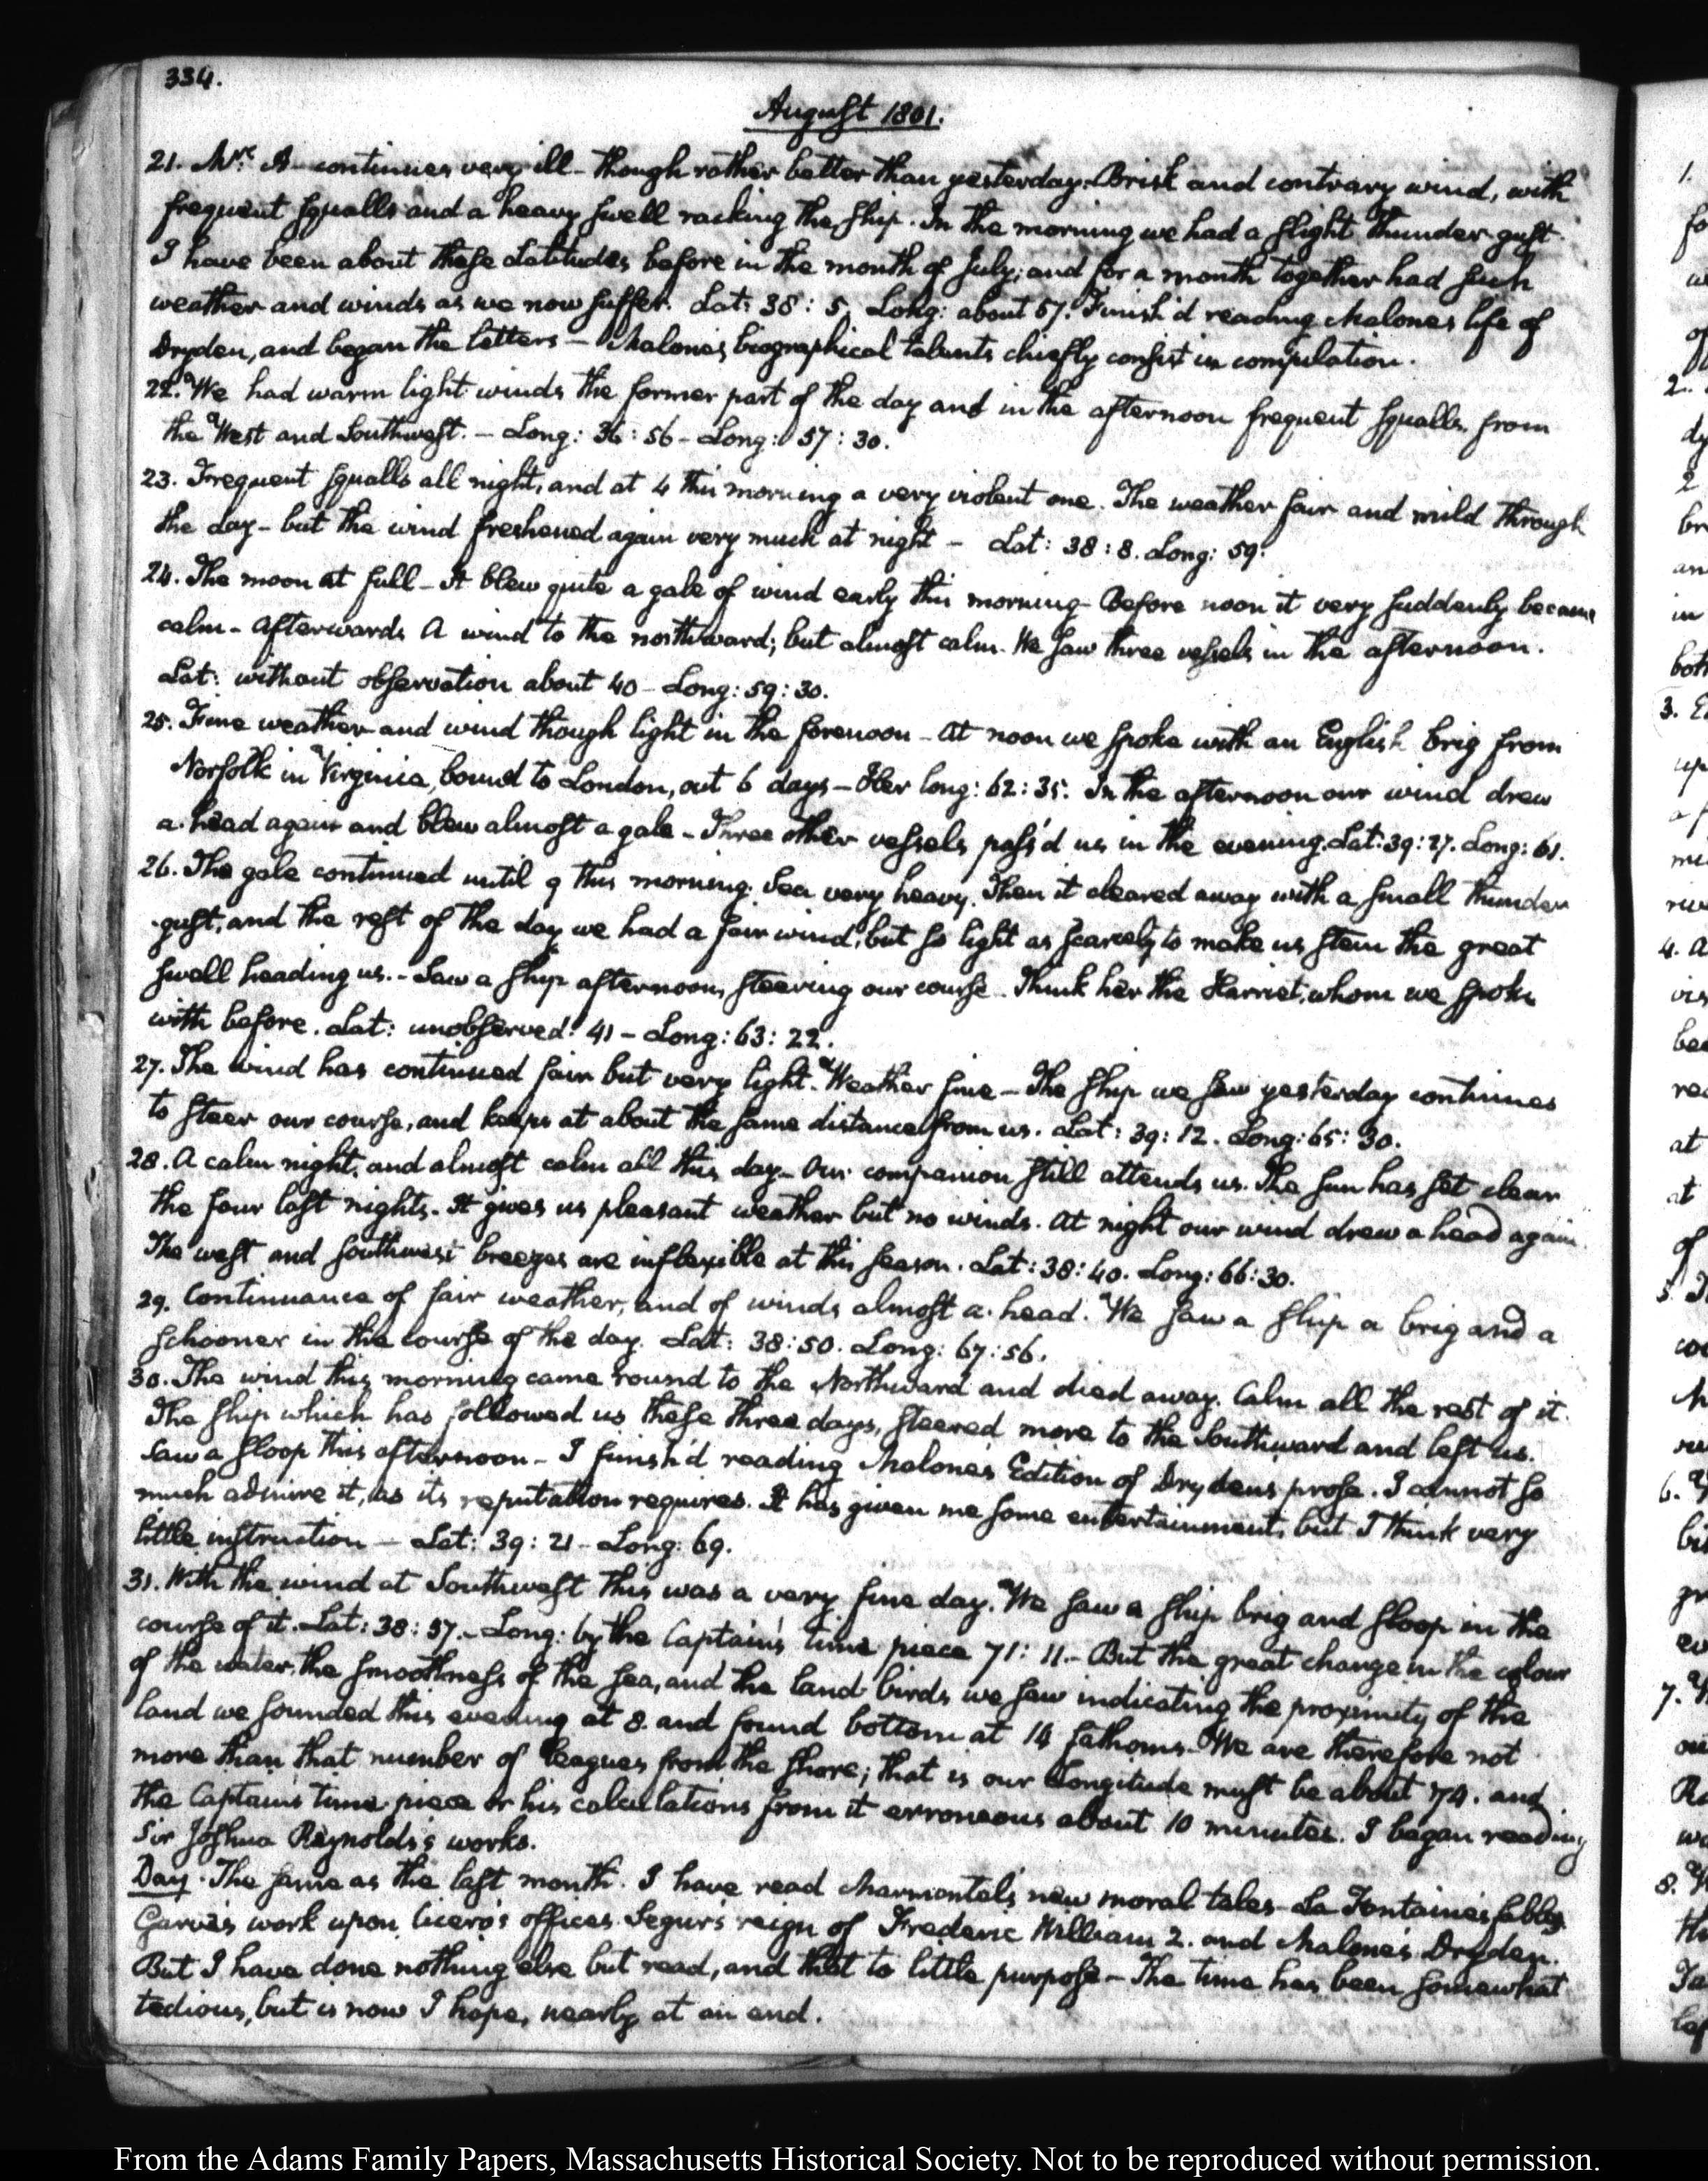 334.
August 1801.
21. Mrs. A— continues very ill— though rather better than yesterday. Brisk and contrary wind, with
frequent squalls and a heavy swell racking the ship. In the morning we had a slight thunder gust.
I have been about these Latitudes before in the month of July; and for a month together had such
weather and winds as we now suffer. Lat: 38: 5. Long: about 57. Finish'd reading Malone's life of
Dryden, and began the letters— Malone's biographical talents chiefly consist in compilation.
22. We had warm light winds the former part of the day and in the afternoon frequent squalls, from
the West and Southwest.— Long: 36: 56— Long: 57: 30.
23. Frequent squalls all night, and at 4 this morning a very violent one. The weather fair and mild through
the day— but the wind freshened again very much at night— Lat: 38: 8. Long: 59.
24. The moon at full— It blew quite a gale of wind early this morning— Before noon it very suddenly became
calm— Afterwards A wind to the northward; but almost calm. We saw three vessels in the afternoon.
Lat: without observation about 40— Long: 59: 30.
25. Fine weather and wind though light in the forenoon— At noon we spoke with an English brig from
Norfolk in Virginia, bound to London, out 6 days— Her long: 62: 35. In the afternoon our wind drew
a-head again and blew almost a gale— Three other vessels pass'd us in the evening. Lat: 39: 27. Long: 61.
26. The gale continued until 9 this morning. Sea very heavy. Then it cleared away with a small thunder
gust, and the rest of the day we had a fair wind, but so light as scarcely to make us stem the great
swell heading us.— Saw a ship afternoon, steering our course. Think her the Harriet, whom we spoke
with before. Lat: unobserved: 41— Long: 63: 22.
27. The wind has continued fair but very light. Weather fine— The ship we saw yesterday continues
to steer our course, and keeps at about the same distance from us. Lat: 39: 12. Long: 65: 30.
28. A calm night, and almost calm all this day— Our companion still attends us. The sun has set clear
the four last nights. It gives us pleasant weather but no winds. At night our wind drew a head again.
The west and southwest breezes are inflexible at this season. Lat: 38: 40. Long: 66: 30.
29. Continuance of fair weather, and of winds almost a-head. We saw a ship a brig and a
schooner in the course of the day. Lat: 38: 50. Long: 67: 56.
30. The wind this morning came round to the Northward and died away. Calm all the rest of it.
The ship which has followed us these three days, steered more to the Southward and left us.
Saw a sloop this afternoon— I finish'd reading Malone's Edition of Drydens prose. I cannot so
much admire it, as its reputation requires. It has given me some entertainment, but I think very
little instruction— Lat: 39: 21— Long: 69.
31. With the wind at Southwest this was a very fine day. We saw a ship brig and sloop in the
course of it. Lat: 38: 57.— Long: by the Captain's time piece 71: 11.— But the great change in the colour
of the water, the smoothness of the sea, and the land birds we saw indicating the proximity of the
land we sounded this evening at 8. and found bottom at 14 fathoms— We are therefore not
more than that number of leagues from the shore; that is our Longitude must be about 74. and
the Captain's time piece or his calculations from it erroneous about 10 minutes. I began reading
Sir Joshua Reynolds's works.
Day. The same as the last month. I have read Marmontel's new moral tales— La Fontaine's fables
Garve's work upon Cicero's offices. Segur's reign of Frederic William 2. and Malone's Dryden.
But I have done nothing else but read, and that to little purpose— The time has been somewhat
tedious, but is now I hope, nearly at an end.
From the Adams Family Papers, Massachusetts Historical Society. Not to be reproduced without permission.